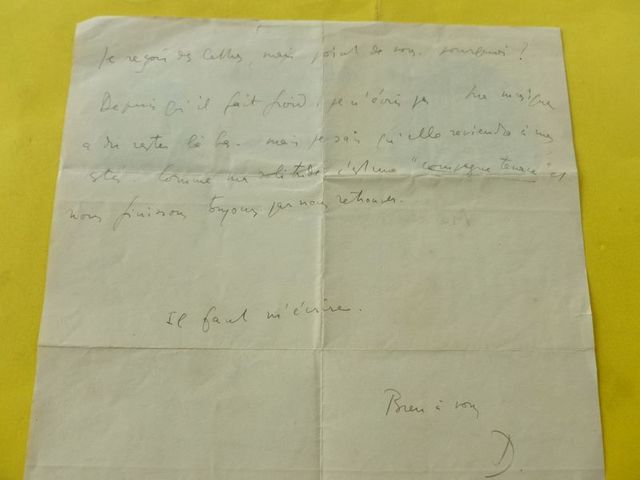 Je reçois des lettres, mais point de vous. pourquoi ?
Depuis qu'il fait froid, je n'écris pas ma musique
a du rester là bas. mais je sais qu'elle reviendra à mes
côtés. Comme ma solitude c'est une "compagne tenace" et
nous finissons toujours par nous retrouver.
Il faut m'écrire.
Bien à vous
D.